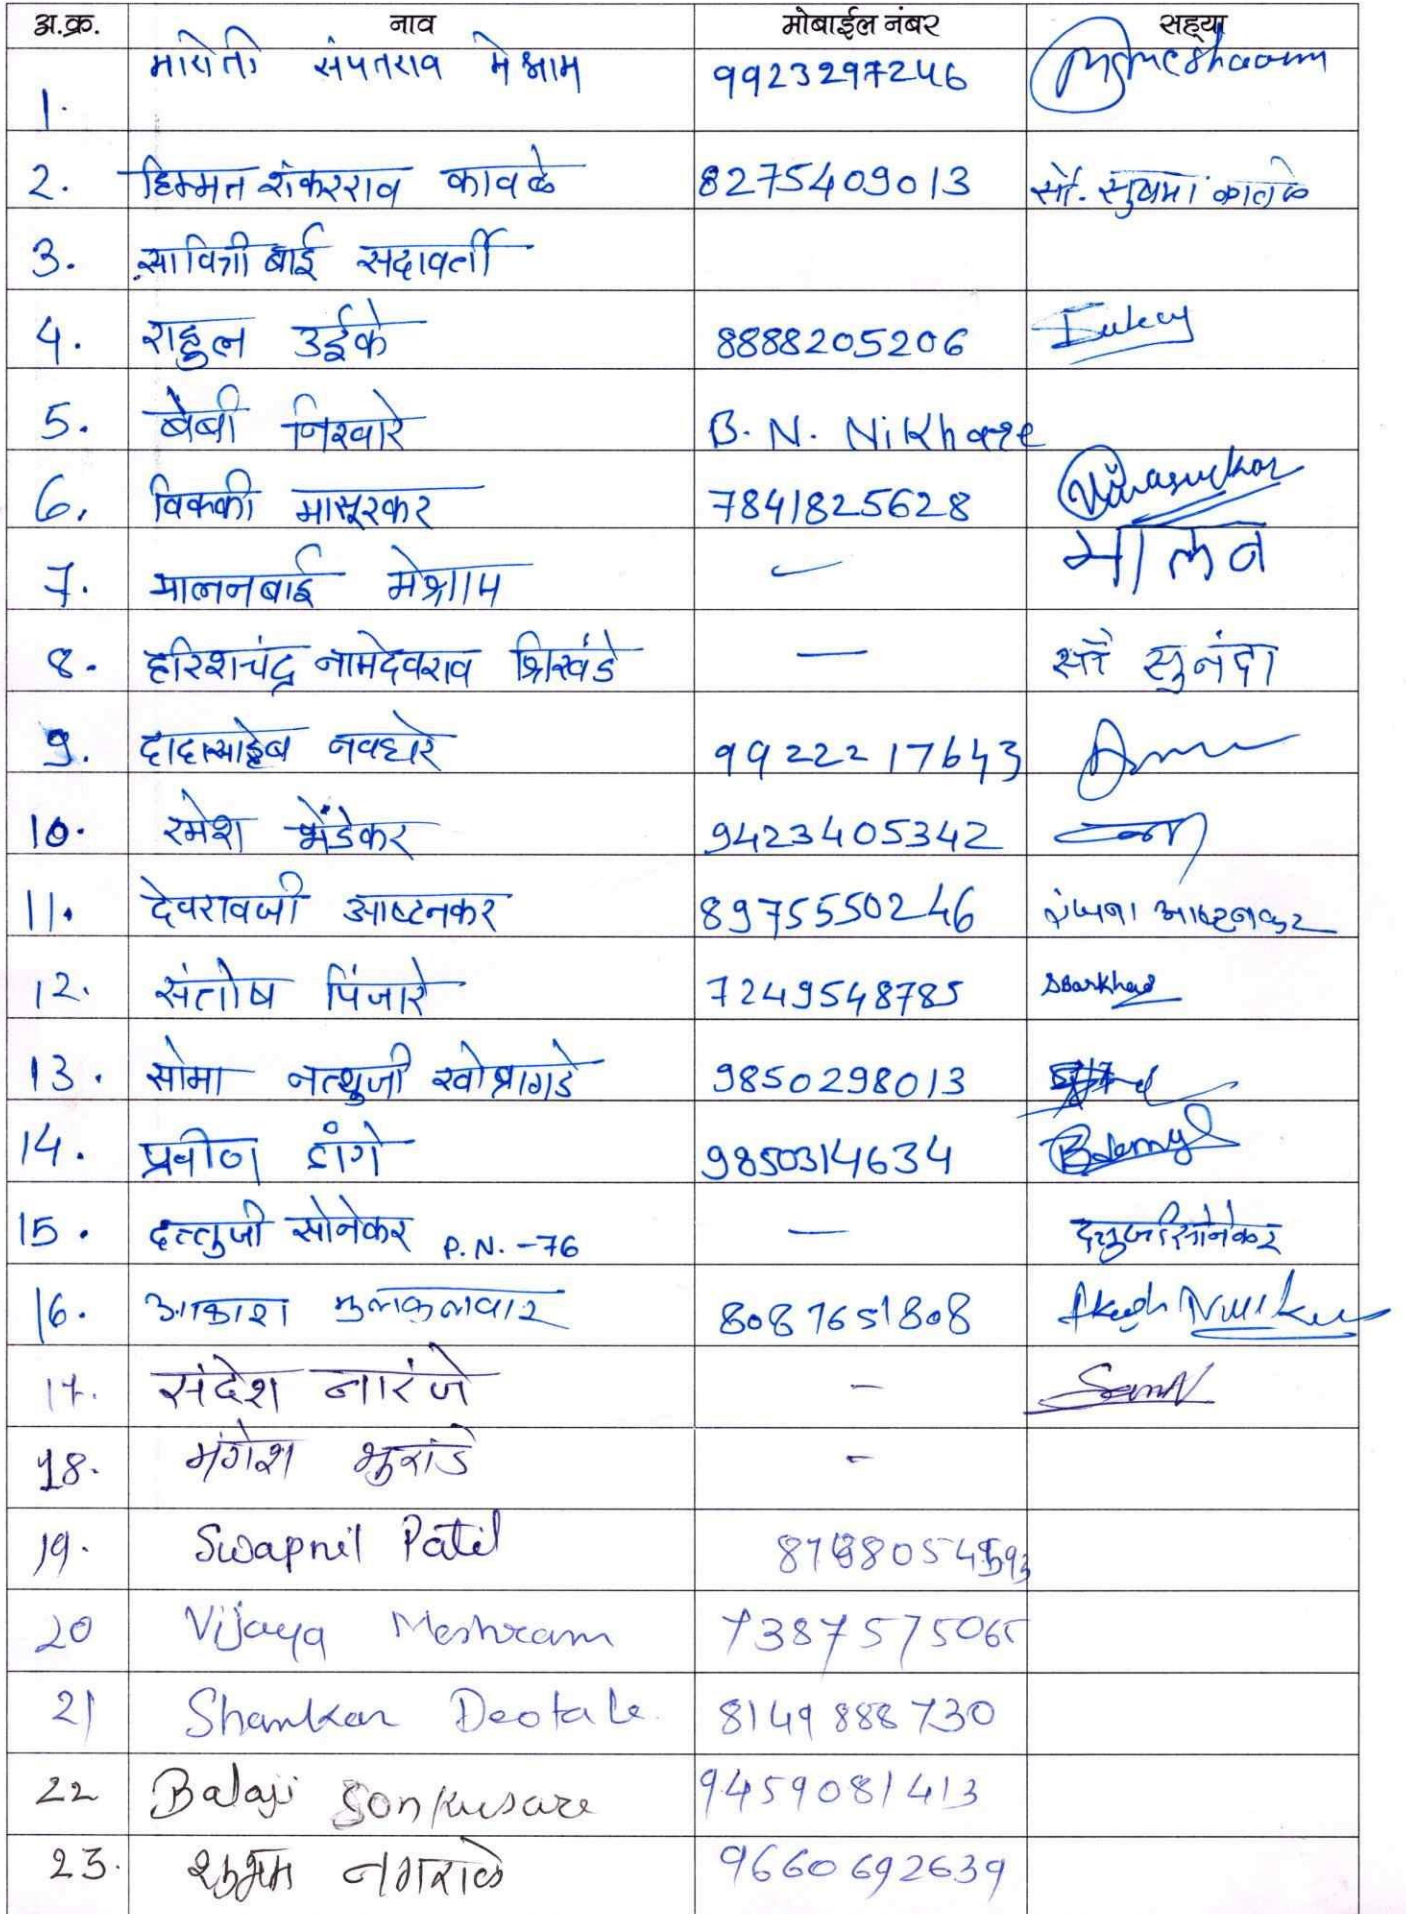 अ.क्र. नाव मोबाईल नंबर सह्या
1. मारोती संपतराव मेश्राम 9923297246
2. हिम्मत शंकरराव कावळे 8275409013 सौ. सुषमा कावळे
3. सावित्रीबाई सदावर्ती
4. राहुल उईके 8888205206
5. बेबी निखारे B. N. Nikhare
6. विक्की मासूरकर 7841825628
7. मालनबाई मेश्राम मालन
8. हरिशचंद्र नामदेवराव श्रिखंडे — सौ सुनंदा
9. दादासाहेब नवघरे 9922217643
10. रमेश भेंडेकर 9423405342
11. देवरावजी आष्टनकर 8975550246 रंजना आष्टनकर
12. संतोष पिंजारे 7249548785
13. सोमा नत्थुजी खोब्रागडे 9850298013
14. प्रवीण डांगे 9850314634
15. दत्तुजी सोनेकर P.N. -76 — दत्तुजी सोनेकर
16. आकाश 8087651808 Akash
17. संदेश नारंजे - Sam
18. मंगेश भुरांडे -
19. Swapnil Patil
20 Vijaya Meshram 7387575065
21 Shankar Deotale. 8149888730
22 Balaji Sonkusare 9459081413
23. शुभम नगराळे 9660692639